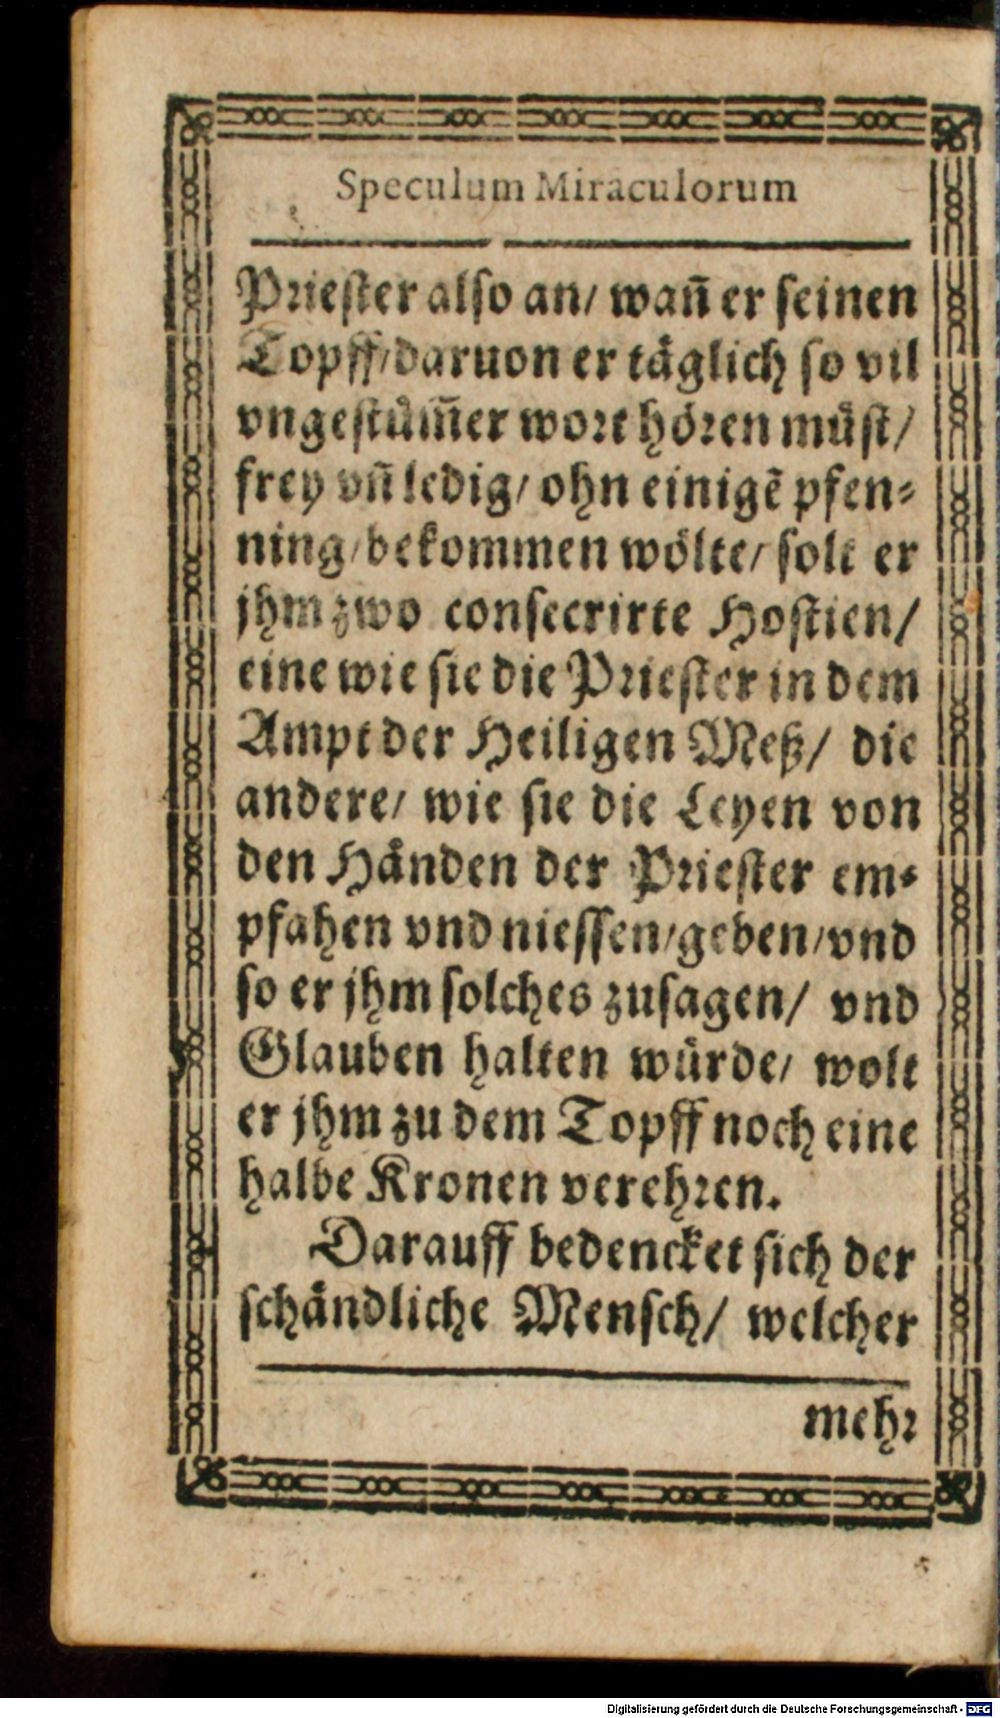 Speculum Miraculorum
Prieſter alſo an/ wañ er ſeinen
Topff/daruon er täglich ſo vil
vngeſtům̃er wort hören můſt/
frey vñ ledig/ ohn einigẽ pfen⸗
ning/bekommen wölte/ ſolt er
jhm zwo conſecrirte Hoſtien/
eine wie ſie die Prieſter in dem
Ampt der Heiligen Meß/ die
andere/ wie ſie die Leyen von
den Händen der Prieſter em⸗
pfahen vnd nieſſen/geben/vnd
ſo er jhm ſolches zuſagen/ vnd
Glauben halten würde/ wolt
er jhm zu dem Topff noch eine
halbe Kronen verehren.
Darauff bedencket ſich der
ſchändliche Menſch/ welcher
mehr
Digitalisierung gefördert durch die Deutsche Forschungsgemeinschaft - DFG